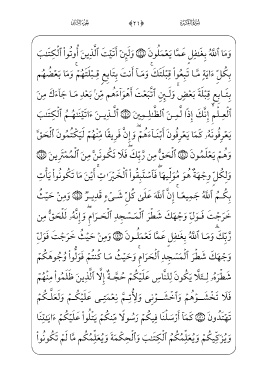 سُورَةُ البَقَرَةِ ﴿٢١﴾ الجُزْءُ الثَّانِي
وَمَا ٱللَّهُ بِغَٰفِلٍ عَمَّا يَعْمَلُونَ ۝ وَلَئِنْ أَتَيْتَ ٱلَّذِينَ أُوتُوا۟ ٱلْكِتَٰبَ
بِكُلِّ ءَايَةٍ مَّا تَبِعُوا۟ قِبْلَتَكَ وَمَآ أَنتَ بِتَابِعٍ قِبْلَتَهُمْ وَمَا بَعْضُهُم
بِتَابِعٍ قِبْلَةَ بَعْضٍ وَلَئِنِ ٱتَّبَعْتَ أَهْوَآءَهُم مِّنۢ بَعْدِ مَا جَآءَكَ مِنَ
ٱلْعِلْمِ إِنَّكَ إِذًا لَّمِنَ ٱلظَّٰلِمِينَ ۝ ٱلَّذِينَ ءَاتَيْنَٰهُمُ ٱلْكِتَٰبَ
يَعْرِفُونَهُۥ كَمَا يَعْرِفُونَ أَبْنَآءَهُمْ وَإِنَّ فَرِيقًا مِّنْهُمْ لَيَكْتُمُونَ ٱلْحَقَّ
وَهُمْ يَعْلَمُونَ ۝ ٱلْحَقُّ مِن رَّبِّكَ فَلَا تَكُونَنَّ مِنَ ٱلْمُمْتَرِينَ ۝
وَلِكُلٍّ وِجْهَةٌ هُوَ مُوَلِّيهَا فَٱسْتَبِقُوا۟ ٱلْخَيْرَٰتِ أَيْنَ مَا تَكُونُوا۟ يَأْتِ
بِكُمُ ٱللَّهُ جَمِيعًا إِنَّ ٱللَّهَ عَلَىٰ كُلِّ شَىْءٍ قَدِيرٌ ۝ وَمِنْ حَيْثُ
خَرَجْتَ فَوَلِّ وَجْهَكَ شَطْرَ ٱلْمَسْجِدِ ٱلْحَرَامِ وَإِنَّهُۥ لَلْحَقُّ مِن
رَّبِّكَ وَمَا ٱللَّهُ بِغَٰفِلٍ عَمَّا تَعْمَلُونَ ۝ وَمِنْ حَيْثُ خَرَجْتَ فَوَلِّ
وَجْهَكَ شَطْرَ ٱلْمَسْجِدِ ٱلْحَرَامِ وَحَيْثُ مَا كُنتُمْ فَوَلُّوا۟ وُجُوهَكُمْ
شَطْرَهُۥ لِئَلَّا يَكُونَ لِلنَّاسِ عَلَيْكُمْ حُجَّةٌ إِلَّا ٱلَّذِينَ ظَلَمُوا۟ مِنْهُمْ
فَلَا تَخْشَوْهُمْ وَٱخْشَوْنِى وَلِأُتِمَّ نِعْمَتِى عَلَيْكُمْ وَلَعَلَّكُمْ
تَهْتَدُونَ ۝ كَمَآ أَرْسَلْنَا فِيكُمْ رَسُولًا مِّنكُمْ يَتْلُوا۟ عَلَيْكُمْ ءَايَٰتِنَا
وَيُزَكِّيكُمْ وَيُعَلِّمُكُمُ ٱلْكِتَٰبَ وَٱلْحِكْمَةَ وَيُعَلِّمُكُم مَّا لَمْ تَكُونُوا۟